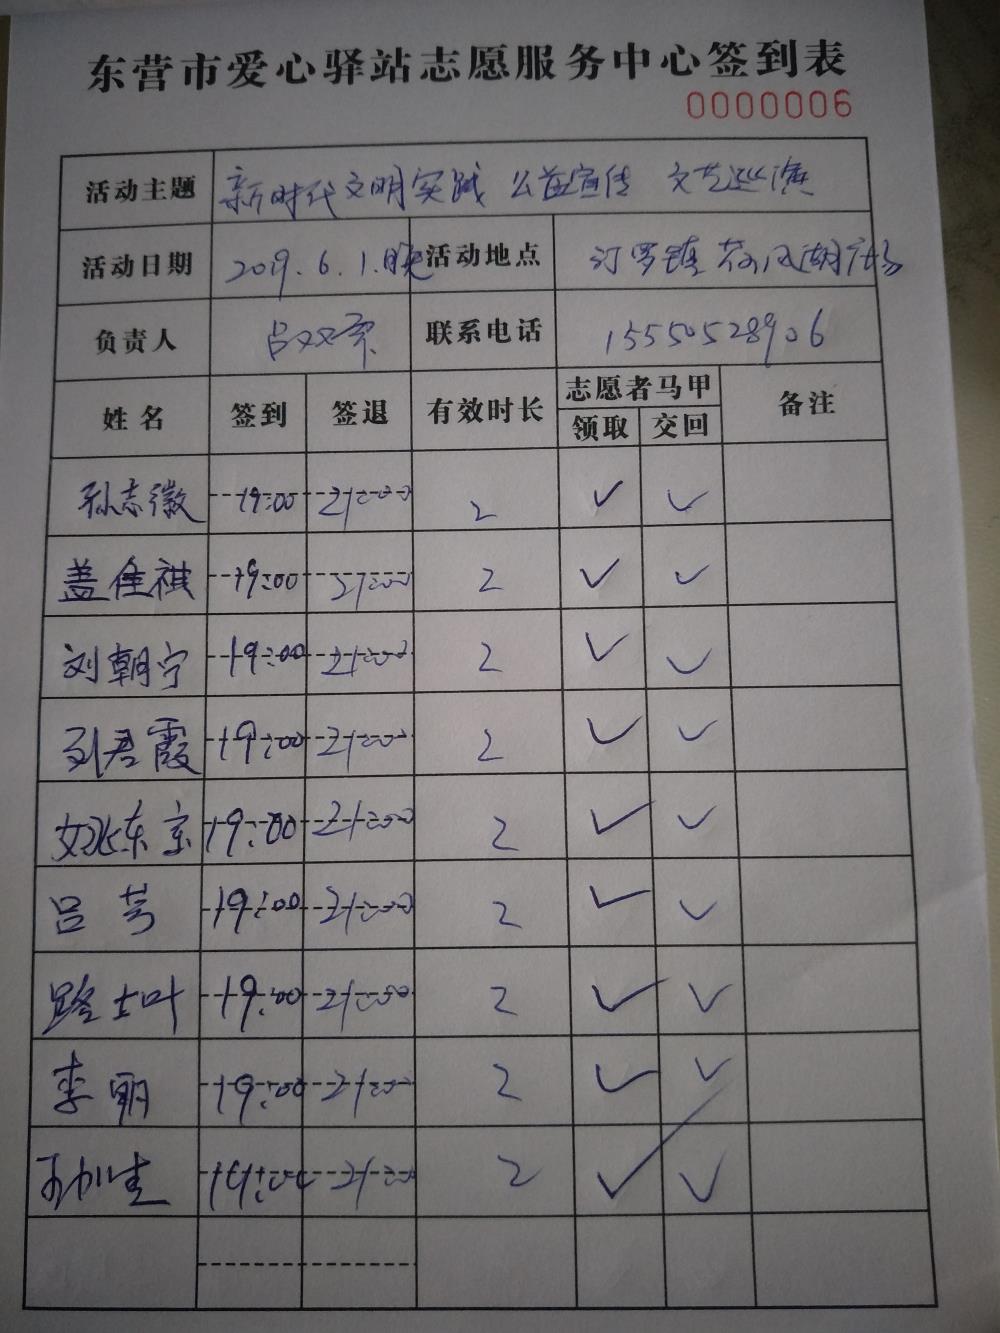 东营市爱心驿站志愿服务中心签到表
0000006
活动主题 新时代文明实践 公益宣传 文艺巡演
活动日期 2019.6.1.晚 活动地点 汀罗镇 荷风湖广场
负责人 吕双 联系电话 15550528906
姓名 签到 签退 有效时长 志愿者马甲 备注
领取 交回
孙志徽 19:00 21:00 2 ✓ ✓
盖佳祺 19:00 21:00 2 ✓ ✓
刘朝宁 19:00 21:00 2 ✓ ✓
君霞 19:00 21:00 2 ✓ ✓
东京 19:00 21:00 2 ✓ ✓
吕芳 19:00 21:00 2 ✓ ✓
路士叶 19:00 21:00 2 ✓ ✓
李明 19:00 21:00 2 ✓ ✓
21:00 2 ✓ ✓